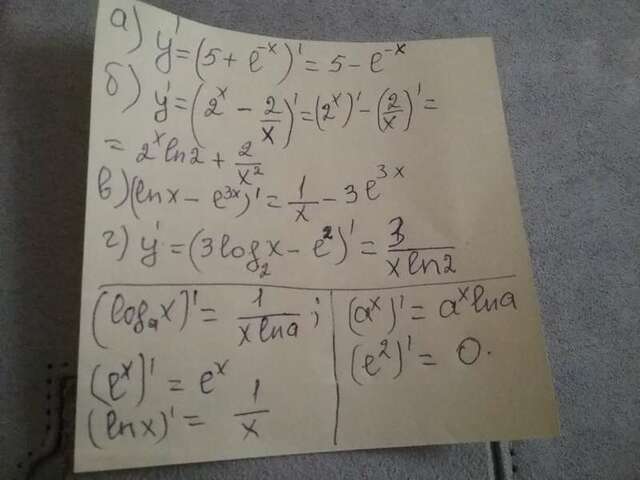 а) y' = (5 + e^-x)' = 5 - e^-x
б) y' = (2^x - 2/x)' = (2^x)' - (2/x)' =
= 2^x ln2 + 2/x^2
в) (lnx - e^3x)' = 1/x - 3e^3x
г) y' = (3log_2 x - e^2)' = 3/(x ln2)
(log_a x)' = 1/(x ln a);
(e^x)' = e^x
(lnx)' = 1/x
(a^x)' = a^x ln a
(e^2)' = 0.